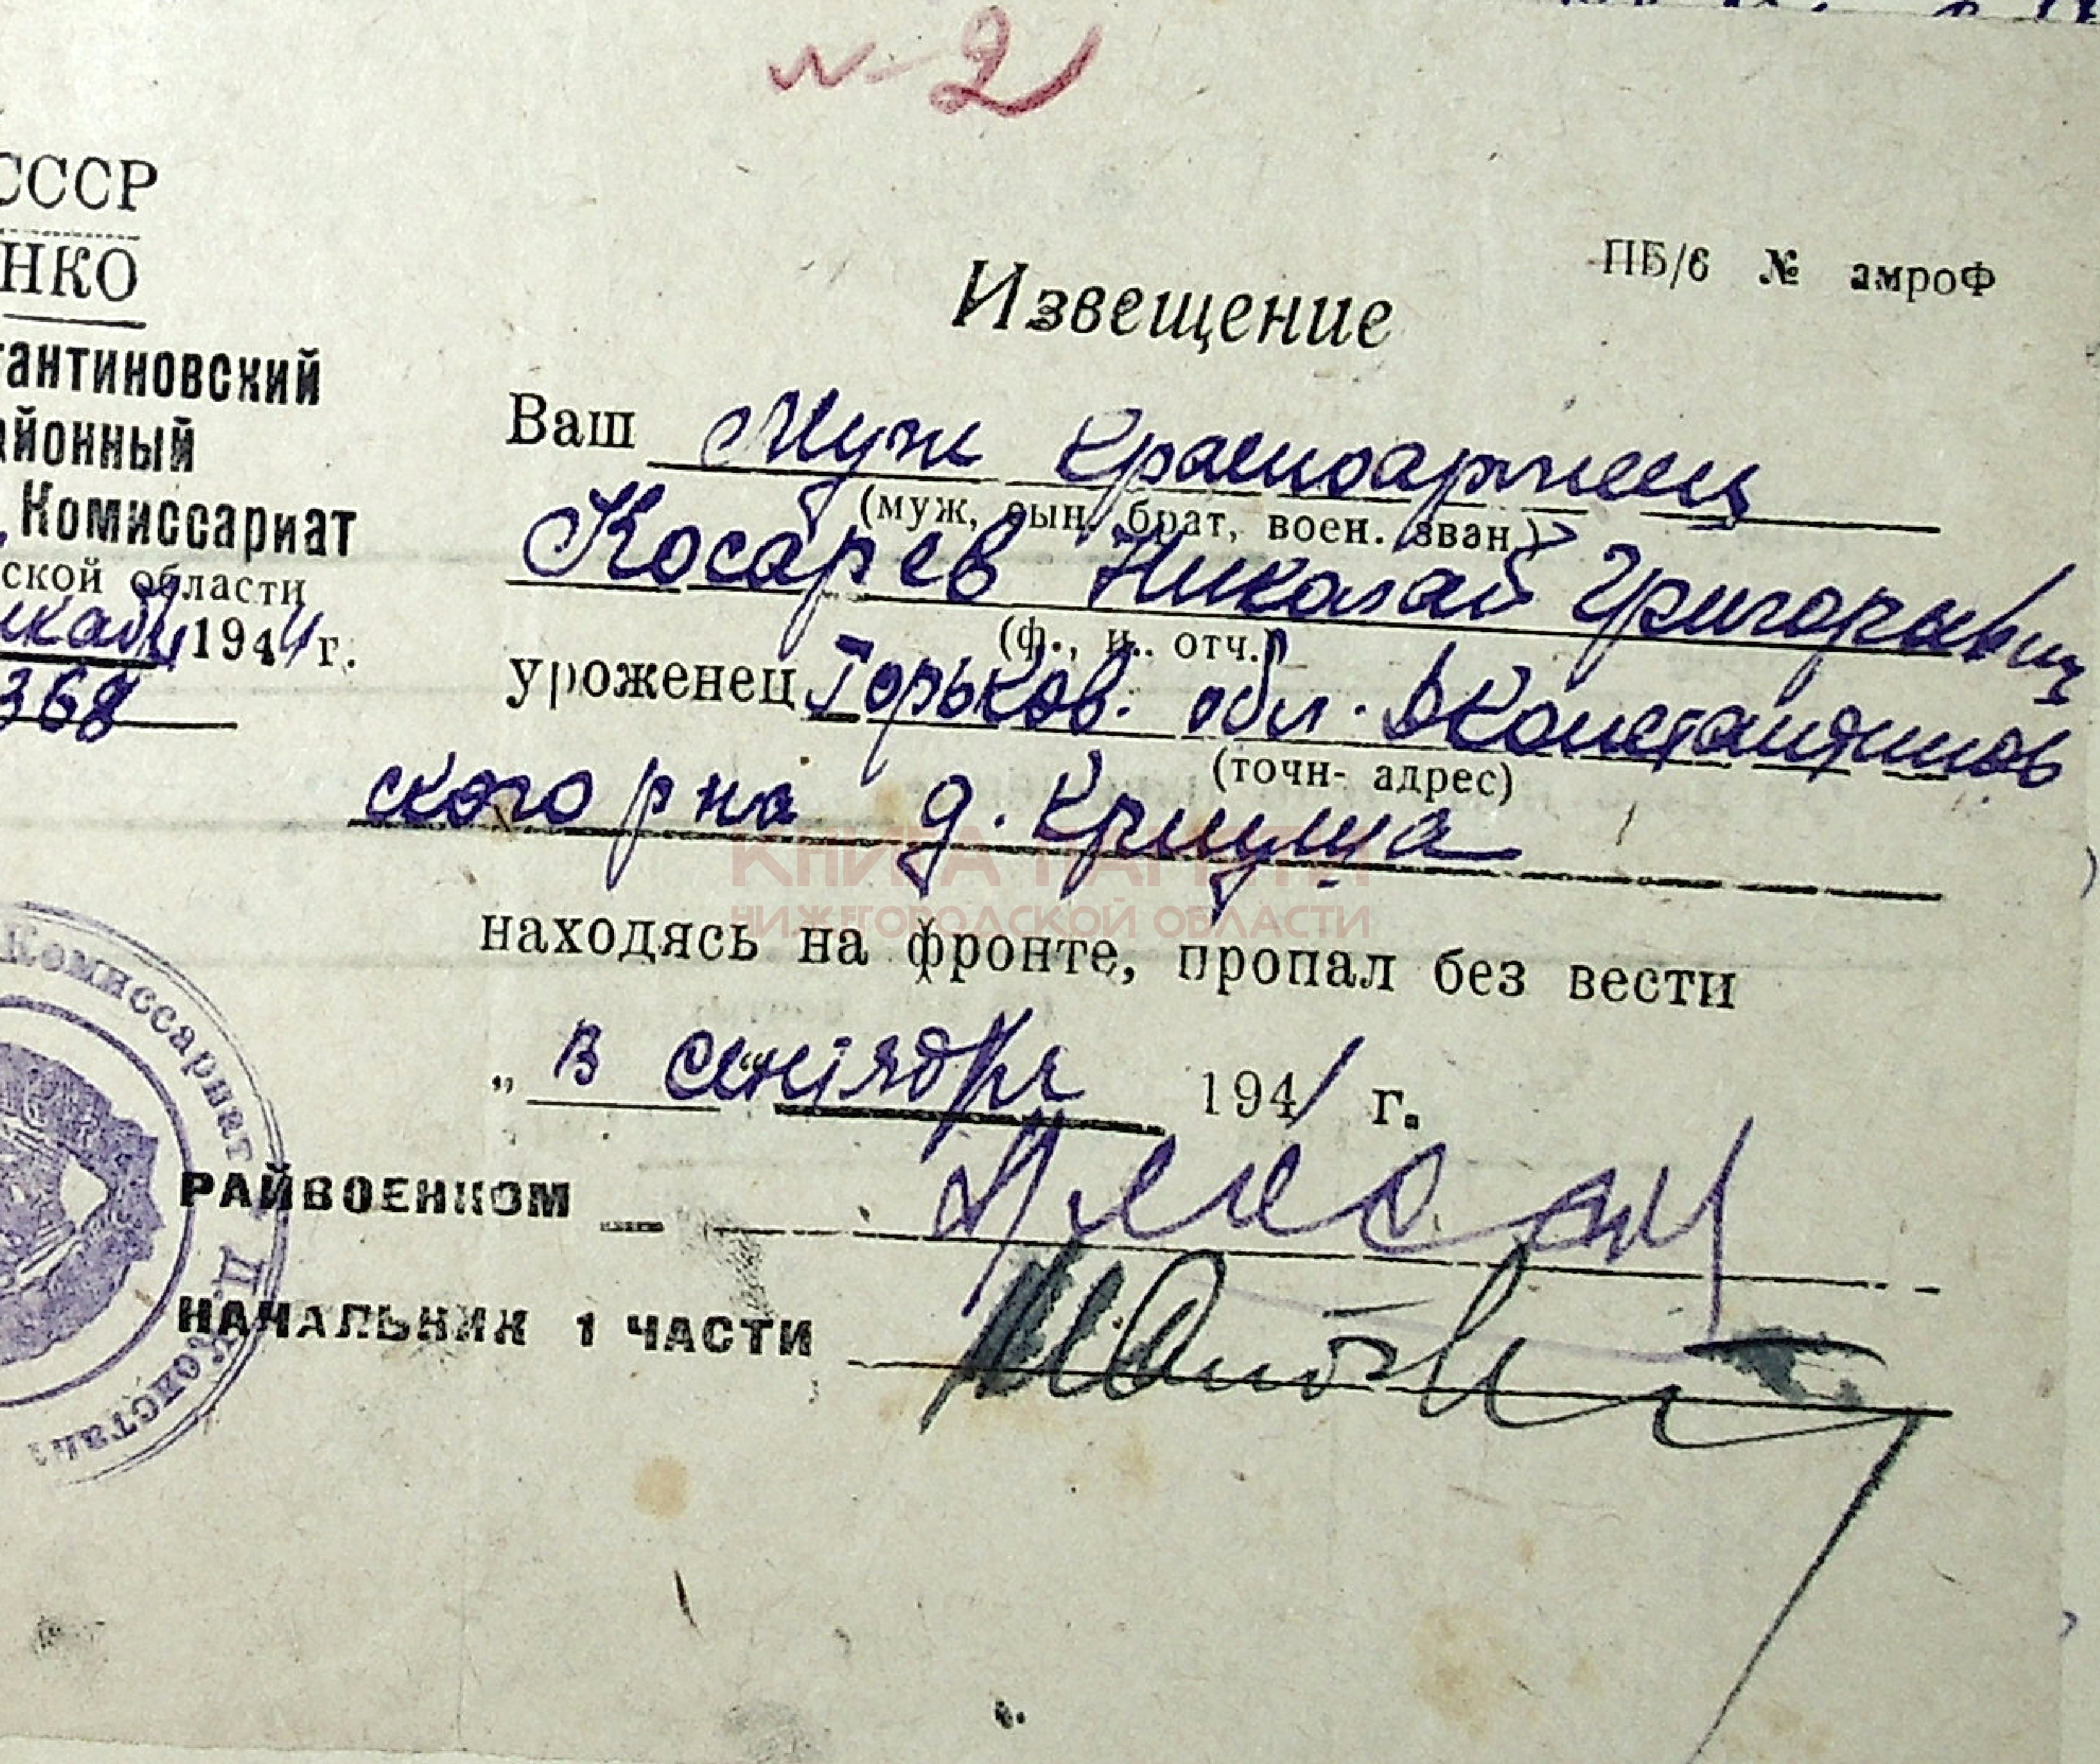 № 2
СССР
НКО
тантиновский
айонный
Комиссариат
ской области
екабр 1944 г.
368
ПБ/6 № амроФ
Извещение
Ваш муж красноармеец
(муж, сын, брат, воен. зван.)
Косарев Николай Григорьевич
(ф., и., отч.)
уроженец Горьков. обл. Дконстантинов
(точн- адрес)
ского р на д. Криуша
находясь на фронте, пропал без вести
„ в сентября 1941 г.
РАЙВОЕНКОМ
НАЧАЛЬНИК 1 ЧАСТИ
Комиссариат Д. Констан
КНИГА ПАМЯТИ
НИЖЕГОРОДСКОЙ ОБЛАСТИ